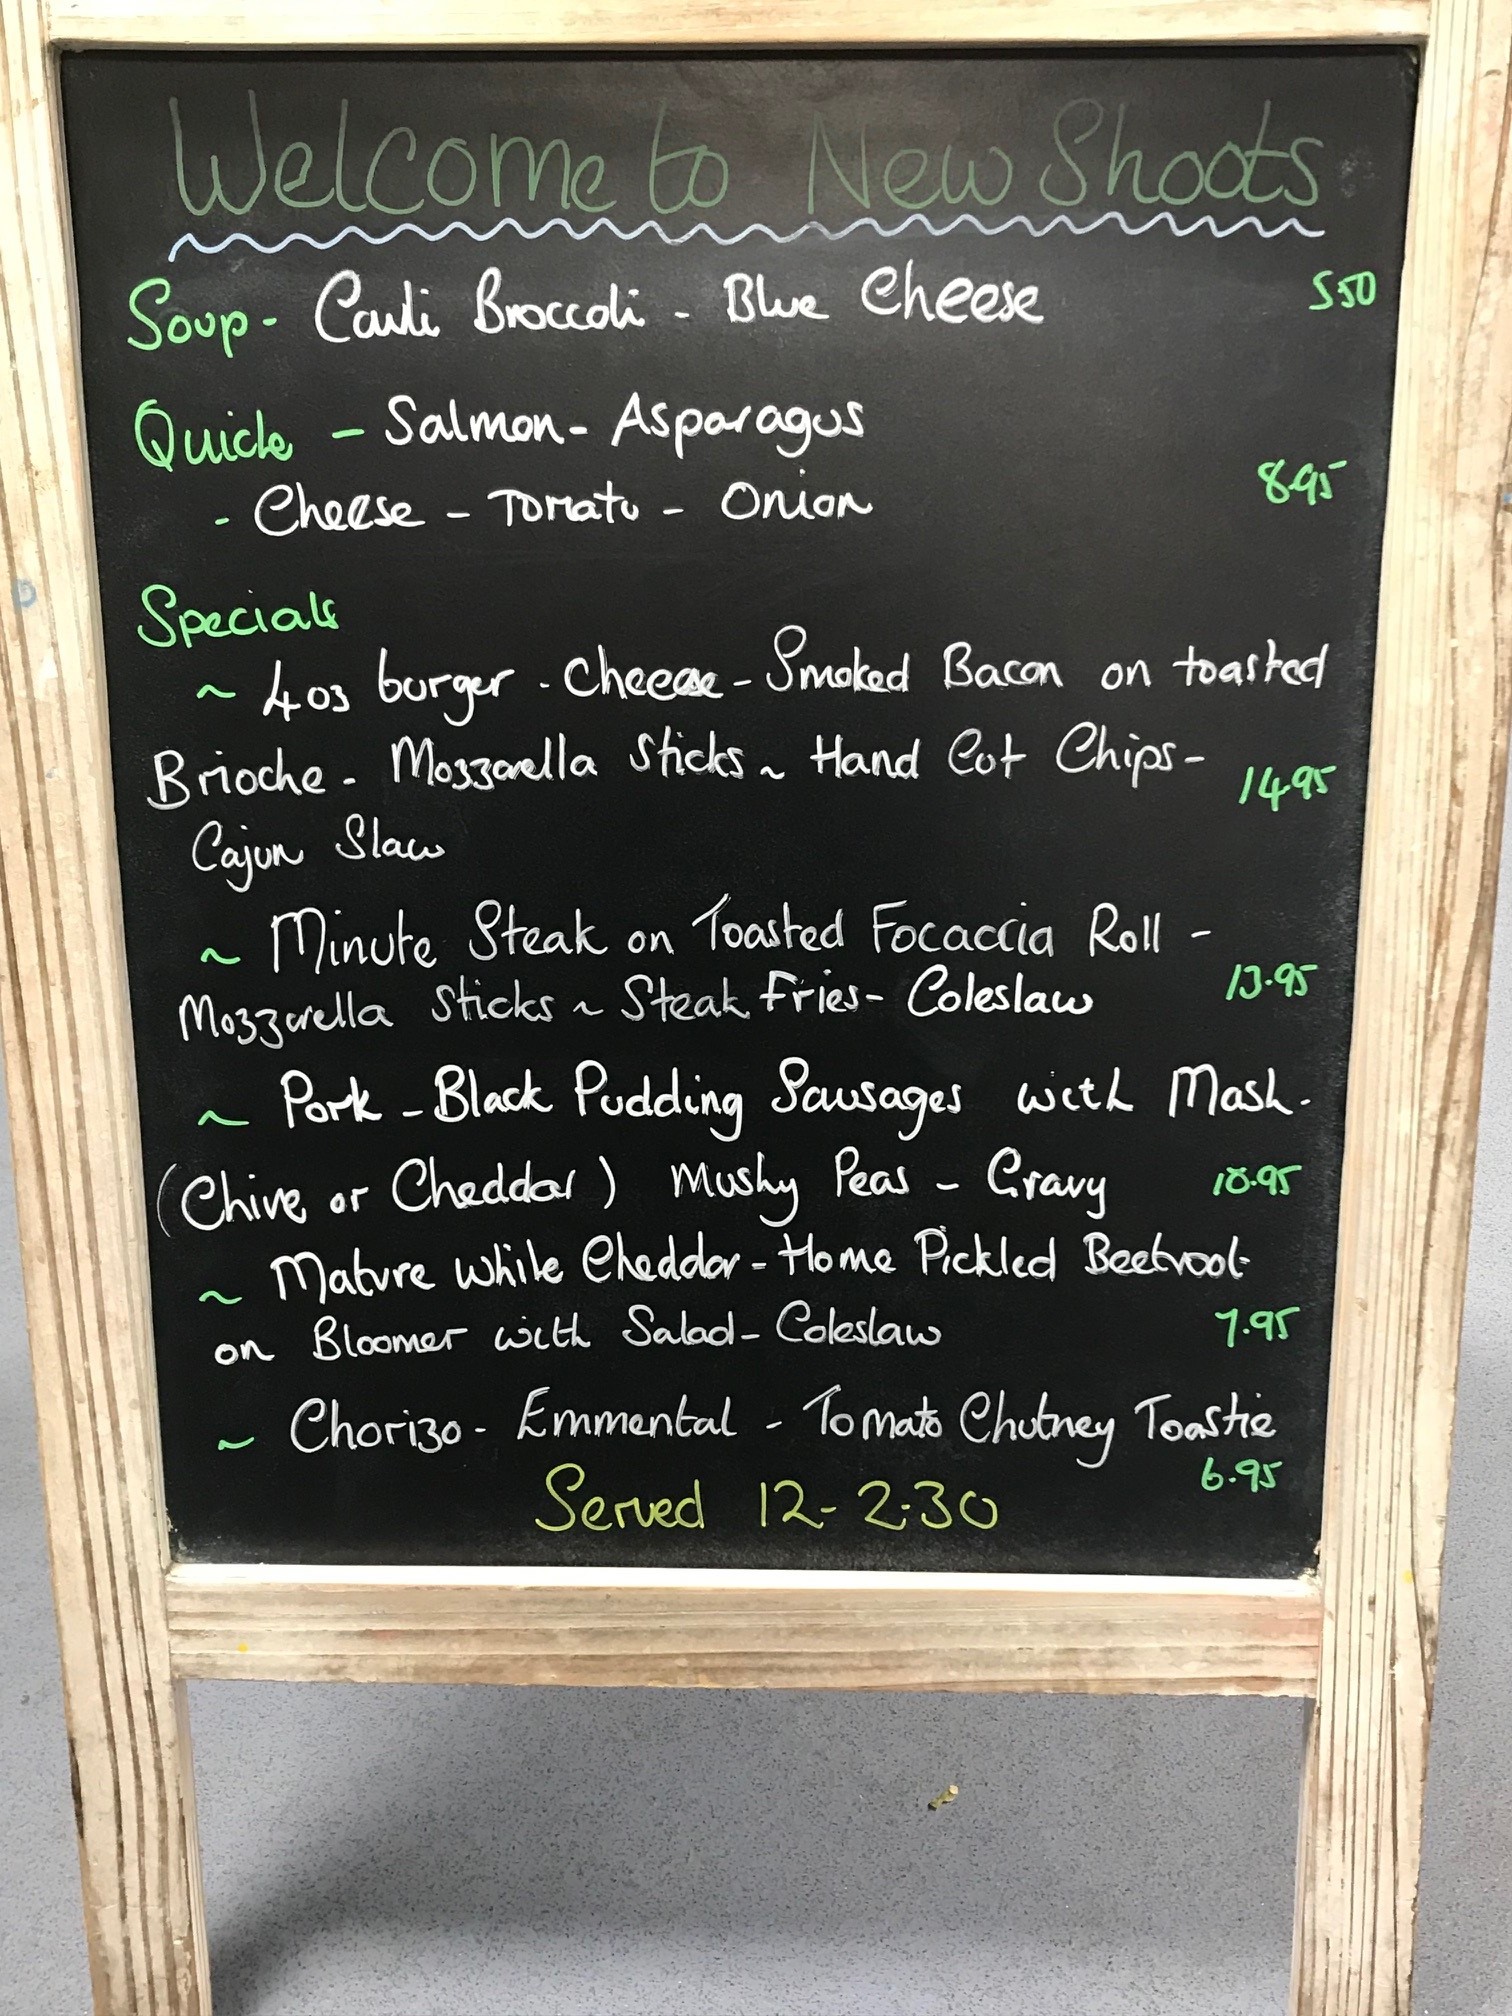 Welcome to New Shoots
Soup - Cauli Broccoli - Blue Cheese 5.50
Quiche - Salmon - Asparagus
- Cheese - Tomato - Onion 8.95
Specials
~ 4oz burger - Cheese - Smoked Bacon on toasted
Brioche - Mozzarella Sticks ~ Hand Cut Chips - 14.95
Cajun Slaw
~ Minute Steak on Toasted Focaccia Roll -
Mozzarella Sticks ~ Steak Fries - Coleslaw 13.95
~ Pork - Black Pudding Sausages with Mash -
(Chive or Cheddar) Mushy Peas - Gravy 10.95
~ Mature White Cheddar - Home Pickled Beetroot
on Bloomer with Salad - Coleslaw 7.95
~ Chorizo - Emmental - Tomato Chutney Toastie
6.95
Served 12 - 2.30